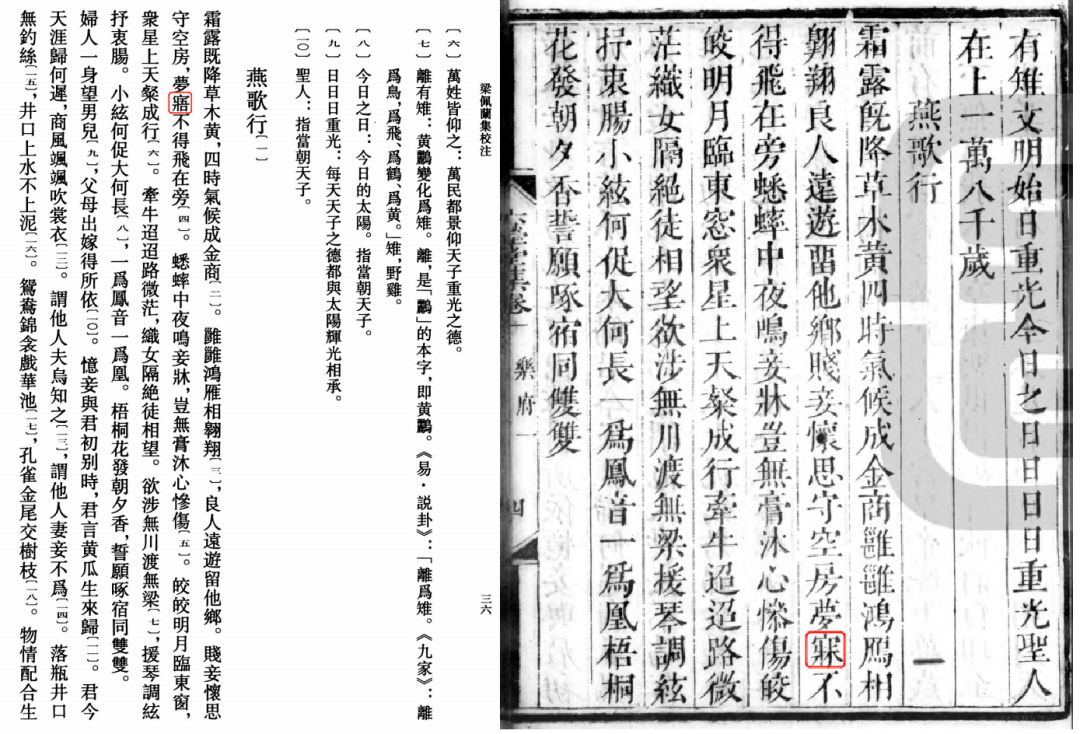 梁佩蘭集校注
三六
〔六〕萬姓皆仰之:萬民都景仰天子重光之德。
〔七〕離有雉:黄鸝變化爲雉。離,是「鸝」的本字,即黄鸝。《易·説卦》:「離爲雉。《九家》:離
爲鳥,爲飛、爲鶴、爲黄。」雉,野雞。
〔八〕今日之日:今日的太陽。指當朝天子。
〔九〕日日日重光:每天天子之德都與太陽輝光相承。
〔一〇〕聖人:指當朝天子。
燕歌行〔一〕
霜露既降草木黄,四時氣候成金商〔二〕。雝雝鴻雁相翱翔〔三〕,良人遠遊留他鄉。賤妾懷思
守空房,夢寤不得飛在旁〔四〕。蟋蟀中夜鳴妾牀,豈無膏沐心慘傷〔五〕。皎皎明月臨東窗,
衆星上天粲成行〔六〕。牽牛迢迢路微茫,織女隔絶徒相望。欲涉無川渡無梁〔七〕,援琴調絃
抒衷腸。小絃何促大何長〔八〕,一爲鳳音一爲凰。梧桐花發朝夕香,誓願啄宿同雙雙。
婦人一身望男兒〔九〕,父母出嫁得所依〔一〇〕。憶妾與君初别時,君言黄瓜生來歸〔一一〕。君今
天涯歸何遲,商風颯颯吹裳衣〔一二〕。謂他人夫烏知之〔一三〕,謂他人妻妾不爲〔一四〕。落瓶井口
無釣絲〔一五〕,井口上水不上泥〔一六〕。鴛鴦錦衾戲華池〔一七〕,孔雀金尾交樹枝〔一八〕。物情配合生
有雉文明始日重光今日之日日日日重光聖人
在上一萬八千歲
燕歌行
霜露既降草木黄四時氣候成金商雝雝鴻鴈相
翱翔良人遠遊畱他鄉賤妾懷思守空房夢寐不
得飛在旁蟋蟀中夜鳴妾牀豈無膏沐心慘傷皎
皎明月臨東窓衆星上天粲成行牽牛迢迢路微
茫織女隔絶徒相望欲涉無川渡無梁援琴調絃
抒衷腸小絃何促大何長一爲鳳音一爲凰梧桐
花發朝夕香誓願啄宿同雙雙
六瑩堂集卷一 樂府一 四